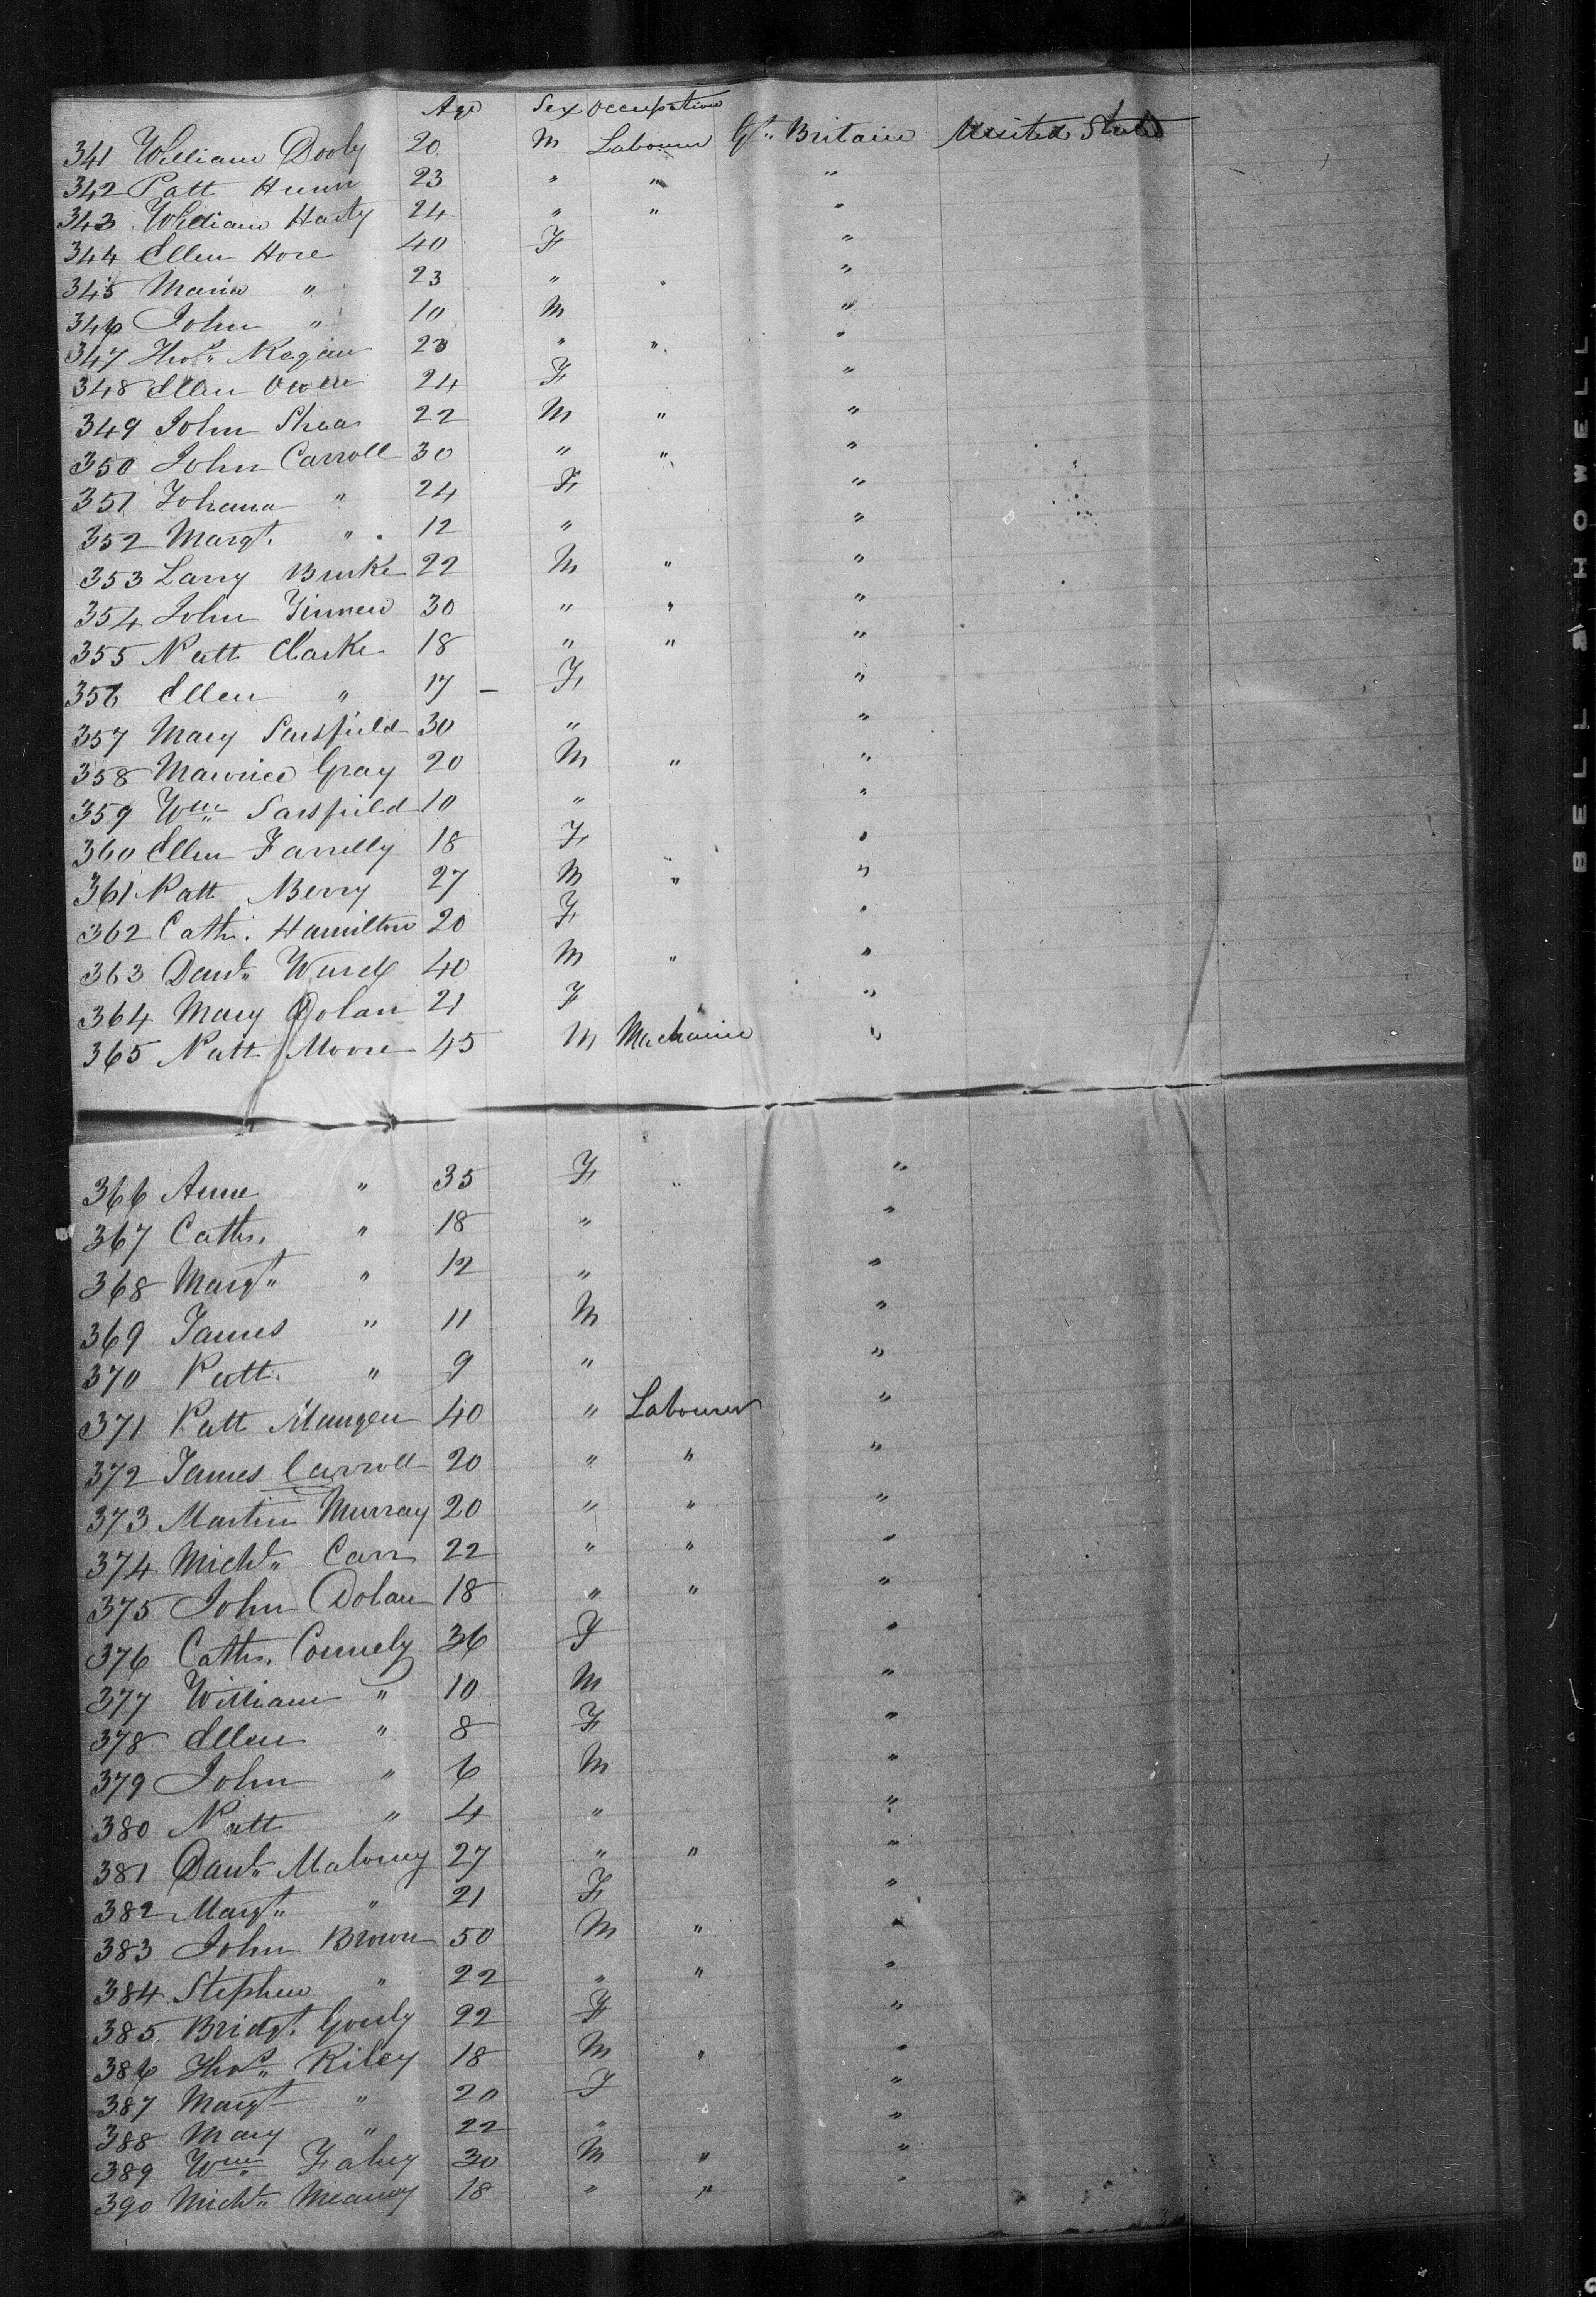 Age Sex Occupation
341 William Dooly 20 M Labourer Gt. Britain United States
342 Patt Hunn 23 " " "
343 William Harty 24 " " "
344 Ellen Hore 40 F "
345 Maria " 23 " "
346 John " 10 M "
347 Thos. Regan 23 " " "
348 Ellen Owen 24 F "
349 John Shea 22 M " "
350 John Carroll 30 " " "
351 Johana " 24 F "
352 Margt. " 12 " "
353 Larry Burke 22 M " "
354 John Finnen 30 " " "
355 Patt Clarke 18 " " "
356 Ellen " 17 – F "
357 Mary Sarsfield 30 " "
358 Maurice Gray 20 M " "
359 Wm. Sarsfield 10 " "
360 Ellen Farrelly 18 F "
361 Patt Berry 27 M " "
362 Cath. Hamilton 20 F "
363 Danl. Ward 40 M " "
364 Mary Dolan 21 F "
365 Patt Moore 45 M Mechanic "
366 Anne " 35 F " "
367 Cath. " 18 " "
368 Margt. " 12 " "
369 James " 11 M "
370 Patt. " 9 " "
371 Patt Mangen 40 " Labourer "
372 James Carroll 20 " " "
373 Martin Murray 20 " " "
374 Michl. Carr 22 " " "
375 John Dolan 18 " " "
376 Cath. Connely 36 F "
377 William " 10 M "
378 Ellen " 8 F "
379 John " 6 M "
380 Patt " 4 " "
381 Danl. Maloney 27 " " "
382 Margt. " 21 F "
383 John Brown 50 M " "
384 Stephen " 22 " " "
385 Bridgt. 22 F "
386 Thos. Riley 18 M " "
387 Margt " 20 F "
388 Mary " 22 " "
389 Wm. Fahey 30 M " "
390 Michl. Meaney 18 " " "
BELL & HOWELL